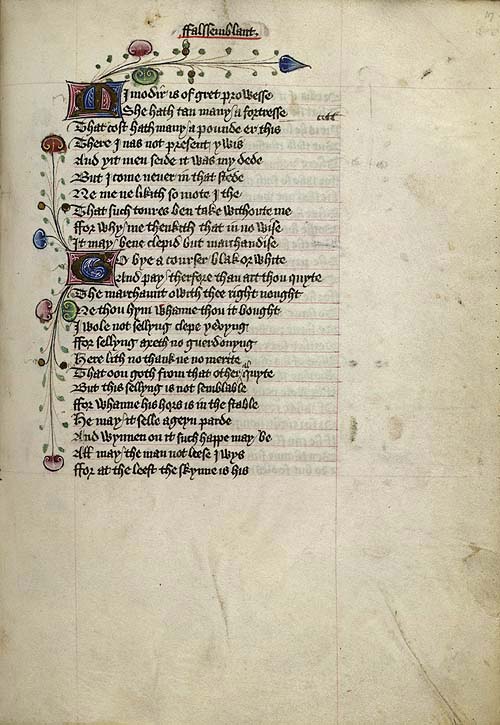 ffalssemblant.
Mi modir is of gret prowesse
She hath tan many a fortresse
That cost hath many a pounde er this
There I nas not present ywis
And yit men seide it was my dede
But I come never in that stede
Ne me ne likith so mote I the
That such toures ben take withoute me
ffor why me thenketh that in no wise
It may bene clepid but marchandise
Go bye a courser blak or white
And pay therfore than art thou quyte
The marchaunt owith thee right nought
Ne thou hym whanne thou it bought
I wole not sellyng clepe yevyng
ffor sellyng axeth no guerdonyng
Here lith no thank ne no merite
That oon goth from that other al quyte
But this sellyng is not semblable
ffor whanne his hors is in the stable
He may it selle ageyn parde
And wynnen on it such happe may be
All may the man not leese I wys
ffor at the leest the skynne is his